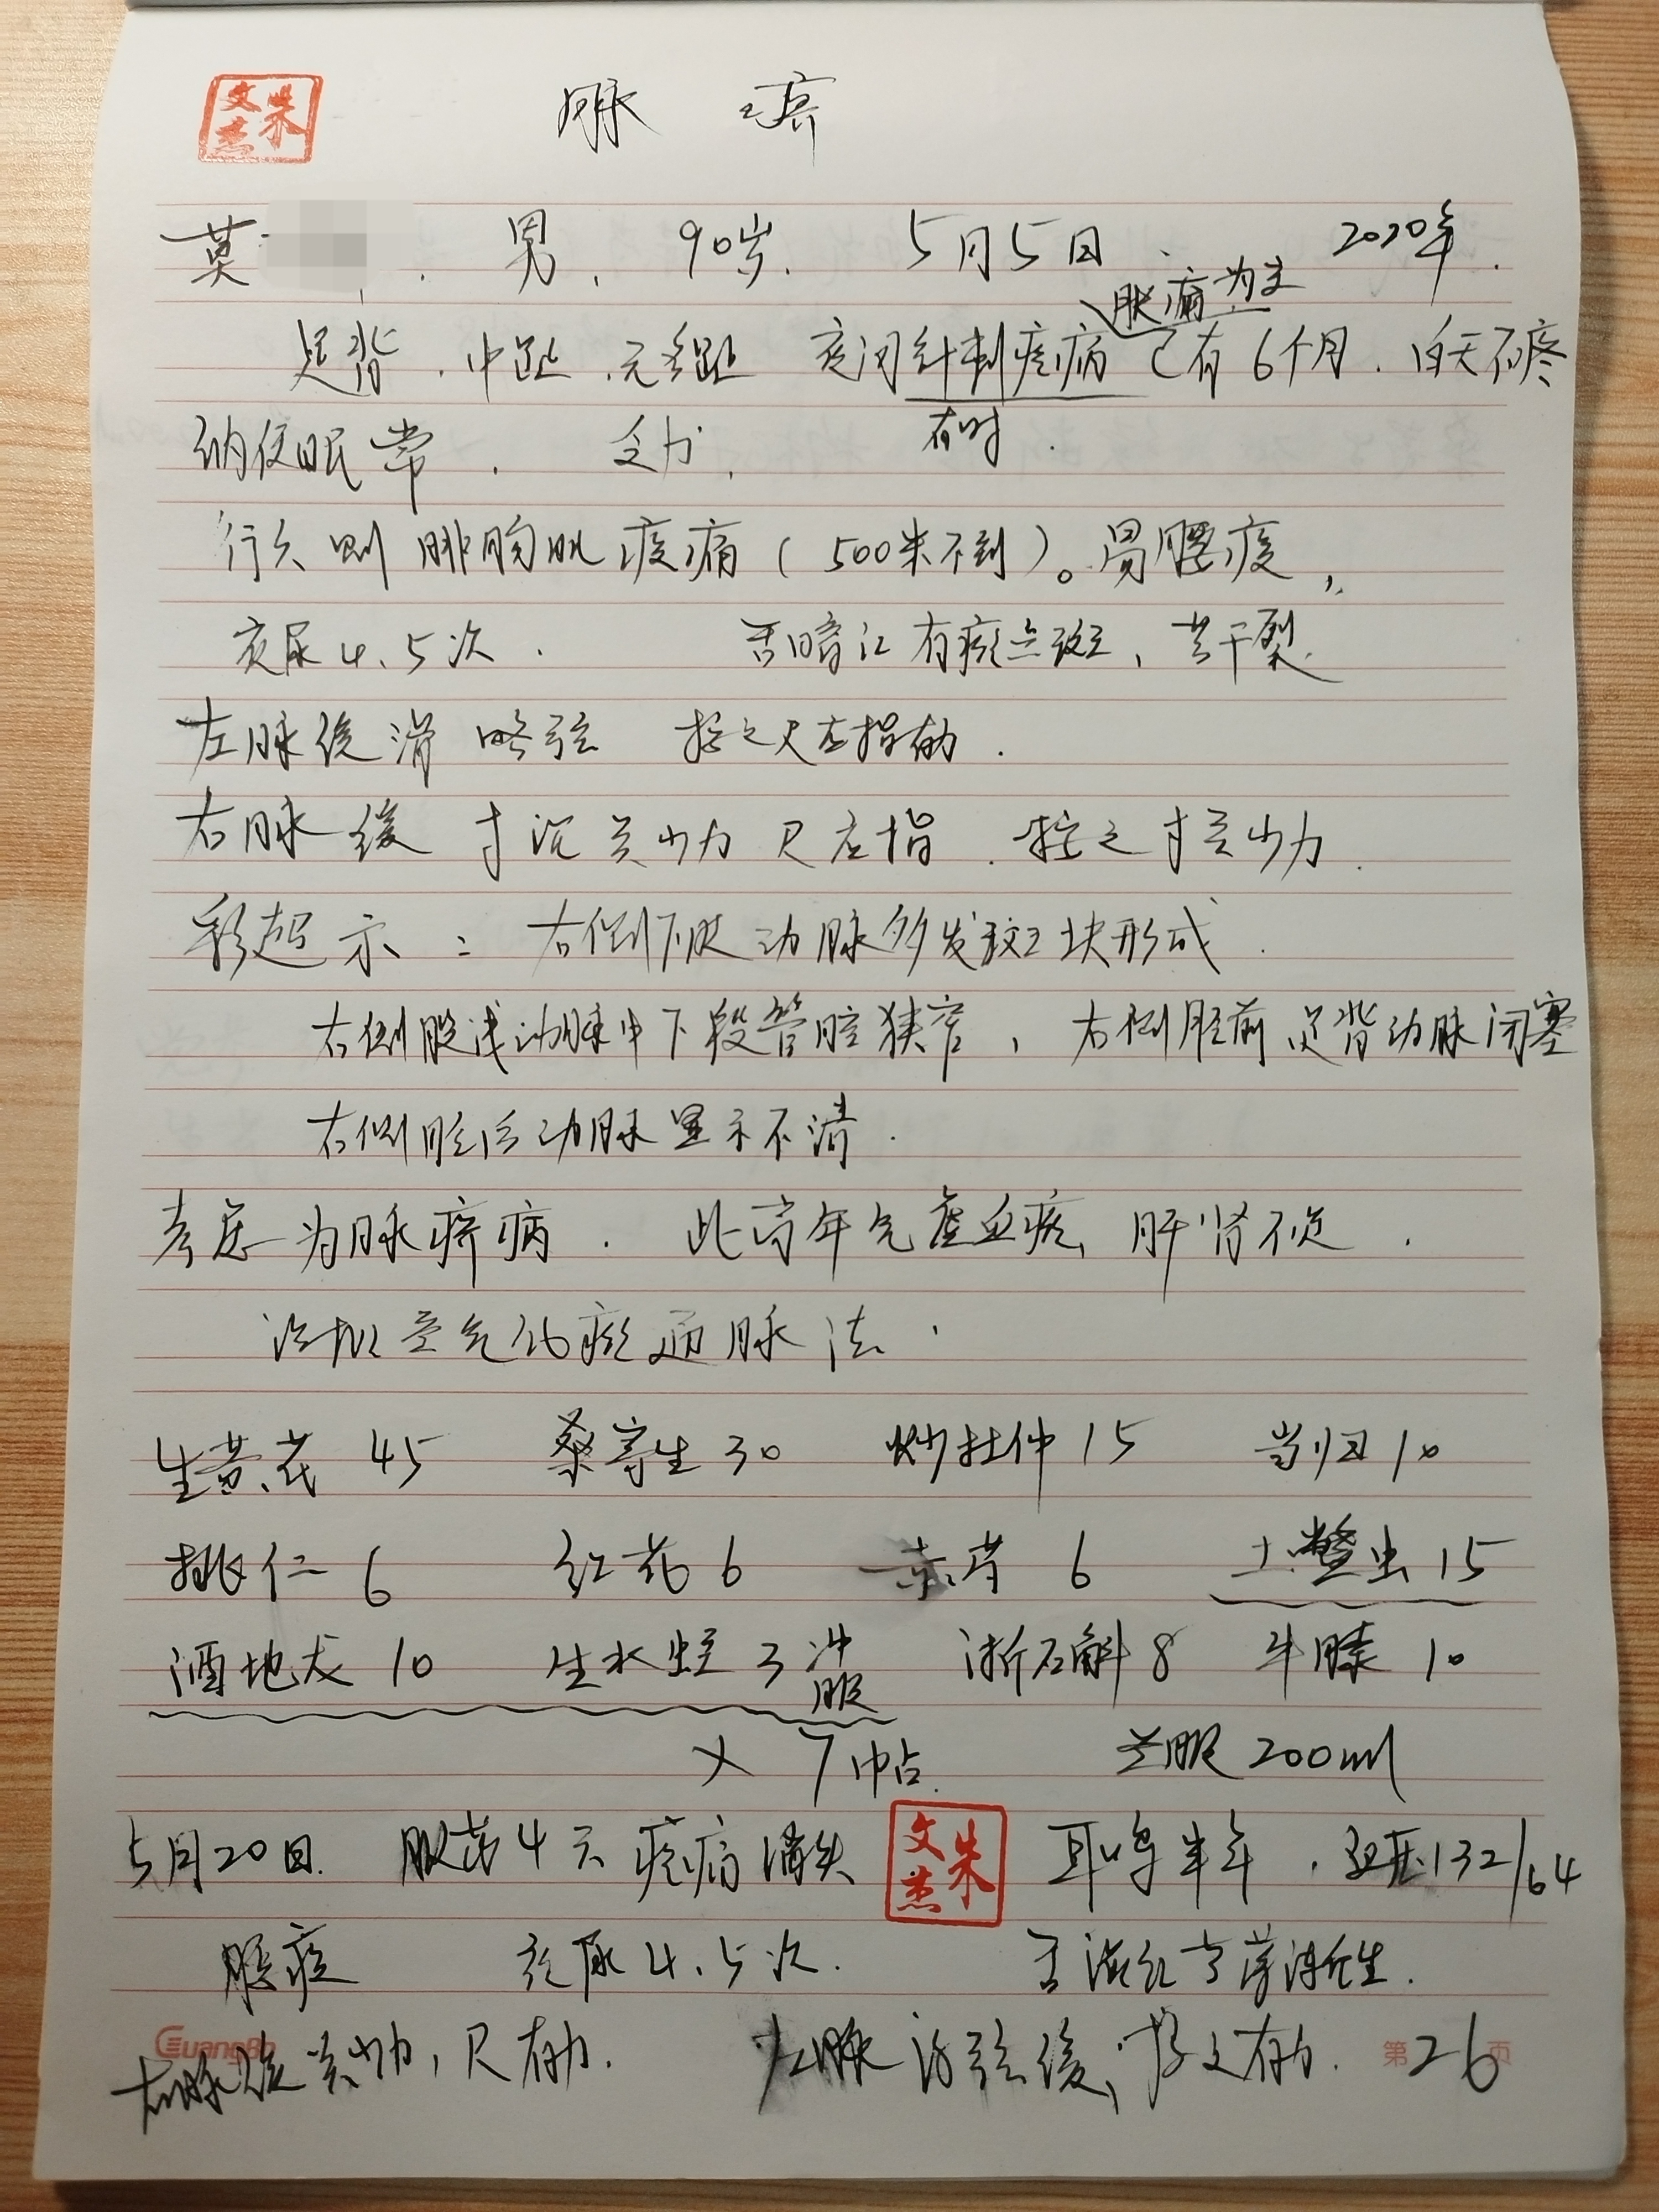 朱文杰
脉痹
莫 . 男 . 90岁. 5月5日 . 2020年.
胀痛为主
足背 . 中趾 . 无名趾 夜间针刺疼痛 已有6个月 . 白天不疼
有时 .
纳便眠常 . 乏力 .
行久则腓肠肌痠痛(500米不到)。易腰痠,
夜尿4、5次 . 舌暗红有瘀点斑, 苔干裂.
左脉缓滑 略弦 按之尺应指有力 .
右脉缓 寸沉关少力 尺应指 . 按之寸关少力 .
彩超示: 右侧下肢动脉多发斑块形成 .
右侧股浅动脉中下段管腔狭窄, 右侧胫前足背动脉闭塞
右侧胫后动脉显示不清 .
考虑为脉痹病 . 此高年气虚血瘀、肝肾不足 .
治拟益气化瘀通脉法 .
生黄芪 45 桑寄生 30 炒杜仲 15 当归 10
桃仁 6 红花 6 赤芍 6 土鳖虫 15
酒地龙 10 生水蛭 3 冲服 浙石斛 8 牛膝 10
× 7帖. 兰服 200ml
5月20日. 服药4天疼痛消失 朱文杰 耳鸣半年 . 血压132/64
腰痠 夜尿4、5次. 舌淡红苔薄津生.
右脉缓关少力, 尺有力. 左脉滑弦缓, 按之有力.
GuangBo 第26页